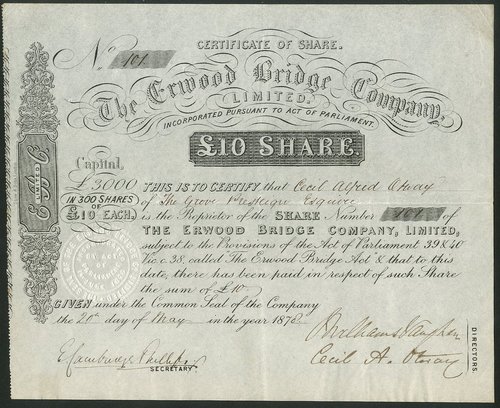 CERTIFICATE OF SHARE.
No. 101.
The Erwood Bridge Company,
LIMITED.
INCORPORATED PURSUANT TO ACT OF PARLIAMENT.
£10 SHARE.
Capital,
£3000
IN 300 SHARES
OF
£10 EACH.
THIS IS TO CERTIFY that Cecil Alfred Otway
of The Grove Presteigne Esquire
is the Proprietor of the SHARE Number 101. of
THE ERWOOD BRIDGE COMPANY, LIMITED,
subject to the Provisions of the Act of Parliament 39 & 40
Vic. c. 38, called The Erwood Bridge Act & that to this
date, there has been paid in respect of such Share
the sum of £10.
GIVEN under the Common Seal of the Company
the 20th day of May in the year 1878
SECRETARY.
Cecil A. Otway
DIRECTORS.
LIMITED